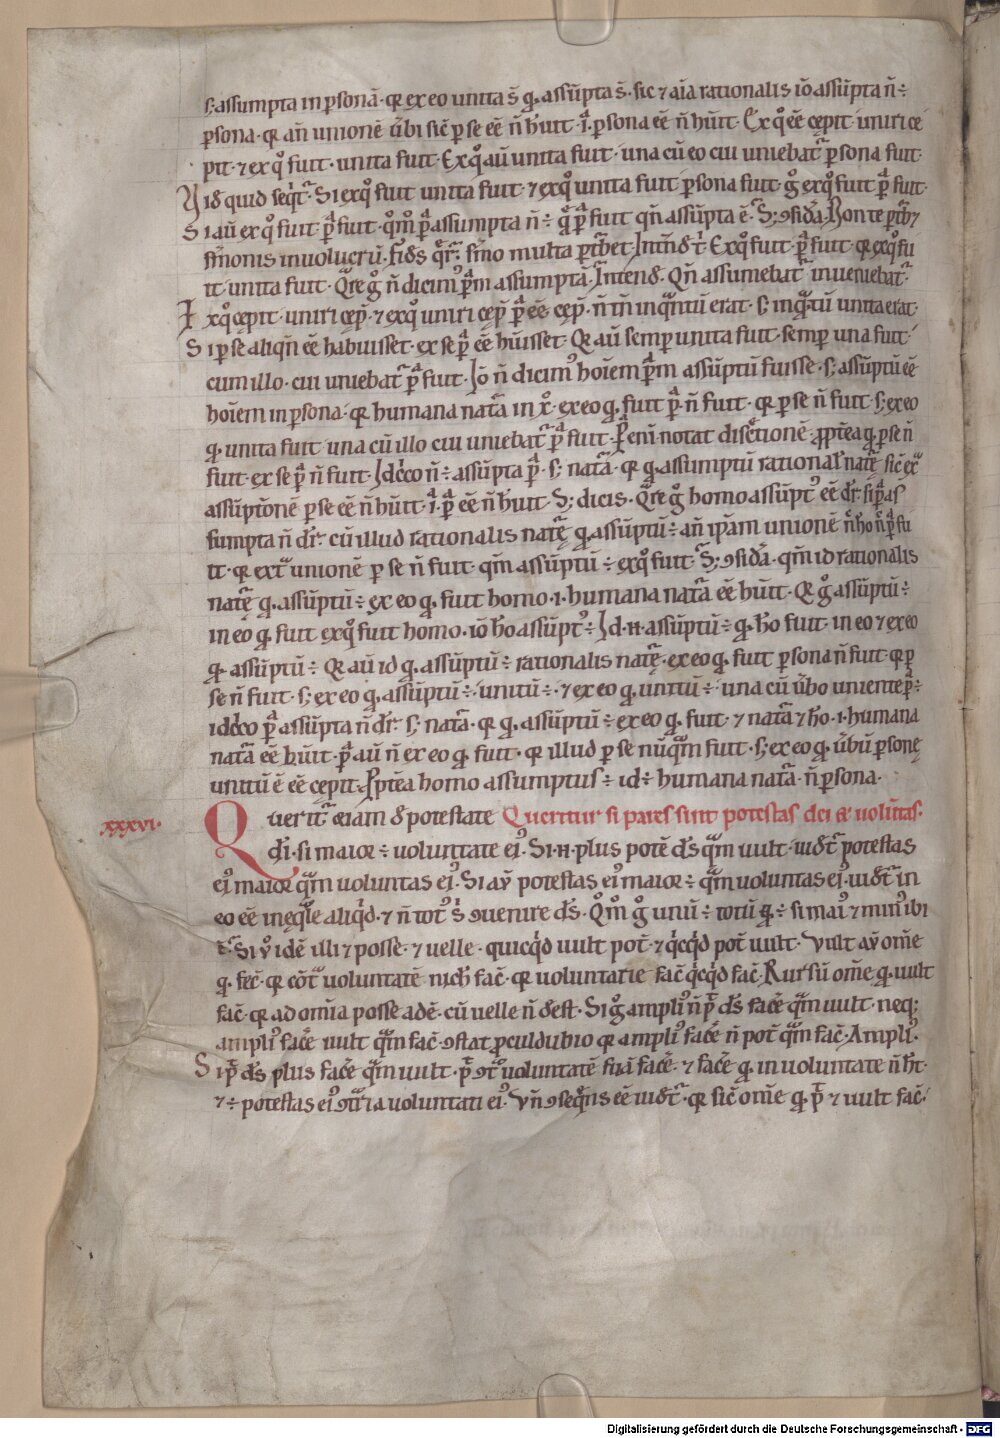 s; assumpta in ꝑsonā· qꝛ ex eo unita s̄ ꝙ assūpta s̄· sic ⁊ aīa rationalis iō assūpta n̄ ÷
ꝑsona· qꝛ an̄ unionē ūbi sic̄ ꝑ se eē n̄ h̄uit· i ꝑsona eē n̄ hūit· Ex qͦ eē cępit uniri cę
pit· ⁊ ex qͦ fuit· unita fuit· Ex qͦ aū unita fuit· una cū eo cui uniebat ꝑsona fuit·
Vid quid seqͥt̄· Si ex qͦ fuit unita fuit· ⁊ ex qͦ unita fuit ꝑsona fuit· gͦ ex qͦ fuit ꝑͣ fuit·
Si aū ex qͦ fuit ꝑͣ fuit· qͦm̄ ꝑͣ assumpta n̄ ÷ qͣ ꝑͣ fuit qn̄ assūpta ē· S; ꝯsid̄a· Non te
sermonis inuolucrū· Fid̄s qͥr̄· sermo multa Ex qͦ fuit· ꝑͣ fuit· qꝛ ex qͦ fu
it· unita fuit· Qͣre gͦ n̄ dicim᷒ ꝑͣm assumptā· Intend· Qn̄ assumebat inueniebat̄
Ex qͦ cępit uniri cęp̄· ⁊ ex qͦ uniri cęp̄ ꝑͣ eē cęp̄· n̄ tn̄ in qͣntū erat· s; in qͣntū unita erat·
Si ꝑ se aliqn̄ eē habuisset· ex se ꝑͣ eē hūisset· Qꝛ aū semꝑ unita fuit· semꝑ una fuit
cum illo· cui uniebat̄ ꝑͣ fuit· Iō n̄ dicim᷒ hoīem ꝑͣm assūptū fuisse· s; assūptū eē
hoīem in ꝑsona· qꝛ humana natͣa in xͦ· ex eo ꝙ fuit ꝑͣ n̄ fuit· qꝛ ꝑ se n̄ fuit· s; ex eo
ꝙ unita fuit una cū illo cui uniebat̄ ꝑͣ fuit· enī notat discͤtionē· ꝓpt̄ea ꝙ ꝑ se n̄
fuit· ex se ꝑͣ n̄ fuit· Idcͦco n̄ ÷ assūpta ꝑͣ· s; natͣa· qꝛ ꝙ assumptū rational᷒ natͣę sic̄
assūptōnē ꝑ se eē n̄ hūit· i ꝑͣ eē n̄ h̄uit· S; dicis· Qͣre gͦ homo assūpt᷒ eē dr̄· si ꝑͣ as
sumpta n̄ dr̄· cū illud rationalis natͣę ꝙ assūptū ÷ an̄ ipͣam unionē n̄ ho n̄ ꝑͣ fu
it· qꝛ extͣ unionē ꝑ se n̄ fuit· qͦm assūptū ÷ ex qͦ fuit· S; ꝯsid̄a· qͦm id rationalis
natͣę ꝙ assūptū ÷ ex eo ꝙ fuit homo· i· humana natͣa eē hūit· Qꝛ gͦ assūptū ÷
in eo ꝙ fuit ex qͦ fuit homo· iō ho assūpt᷒ ÷ Id· n· assūptū ÷ ꝙ ho fuit· in eo ⁊ ex eo
ꝙ assūptū ÷ Qꝛ aū id ꝙ assūptū ÷ rationalis natͣę· ex eo ꝙ fuit ꝑsona n̄ fuit· qꝛ ꝑ
se n̄ fuit· s; ex eo ꝙ assūptū ÷ unitū ÷ ⁊ ex eo ꝙ unitū ÷ una cū ūbo uniente ꝑͣ ÷
idcͦco ꝑͣ assūpta n̄ dr̄· s; natͣa· qꝛ ꝙ assūptū ÷ ex eo ꝙ fuit· ⁊ natͣa ⁊ ho· i· humana
natͣa eē hūit· ꝑͣ aū n̄ ex eo ꝙ fuit· qꝛ illud ꝑ se nūqͣm fuit· s; ex eo ꝙ ūbū ꝑsonę
unitū ē eē cępit· Ꝓpt̄ea homo assumptus ÷ id ÷ humana natͣa· n̄ ꝑsona·
xxxvi·
Querit̄ etiam de potestate Queritur si pares sint potestas dei et volūtas·
di· si maior ÷ uoluntate ei᷒· Si· n· plus potē ds̄ qͣm uult· uidet̄ potestas
ei᷒ maior qͣm uoluntas ei᷒· Si aū potestas ei᷒ maior ÷ qͣm uoluntas ei᷒· uidet̄ in
eo eē inęqͣle aliqͥd· ⁊ n̄ tot᷒ s̄ ꝯuenire ds̄· Qͦm gͦ unū ÷ totū qꝛ ÷ si mai᷒ ⁊ min᷒ ibi
ē· Si ū idē illi ⁊ posse· ⁊ uelle· quicqͥd uult pot̄· ⁊ qͥcqͥd pot̄ uult· Vult aū om̄e
ꝙ fec̄· qꝛ cōtͣ uoluntatē nich̄ fac̄· qꝛ uoluntarie fac̄ qͥcqͥd fac̄· Rursū om̄e ꝙ uult
fac̄· qꝛ ad om̄ia posse adē· cū uelle n̄ deest· Si gͦ ampli᷒ n̄ pͥ ds̄ facͤe qͣm uult· neq;
ampli᷒ facͤe uult qͣm fac̄· ꝯstat ꝓculdubio qꝛ ampli᷒ facͤe n̄ pot̄ qͣm fac̄· Ampli᷒·
Si pͥ ds̄ plus facͤe qͣm uult· pͥ ꝯtͣ uoluntatē suā facͤe· ⁊ facͤe ꝙ in uoluntate n̄ ht̄·
⁊ ÷ potestas ei᷒ ꝯtͣria uoluntati ei᷒· Vn̄ ꝯseqͤns eē uidet̄· qꝛ sic̄ om̄e ꝙ pͥ ⁊ uult fac̄·
Digitalisierung gefördert durch die Deutsche Forschungsgemeinschaft - DFG